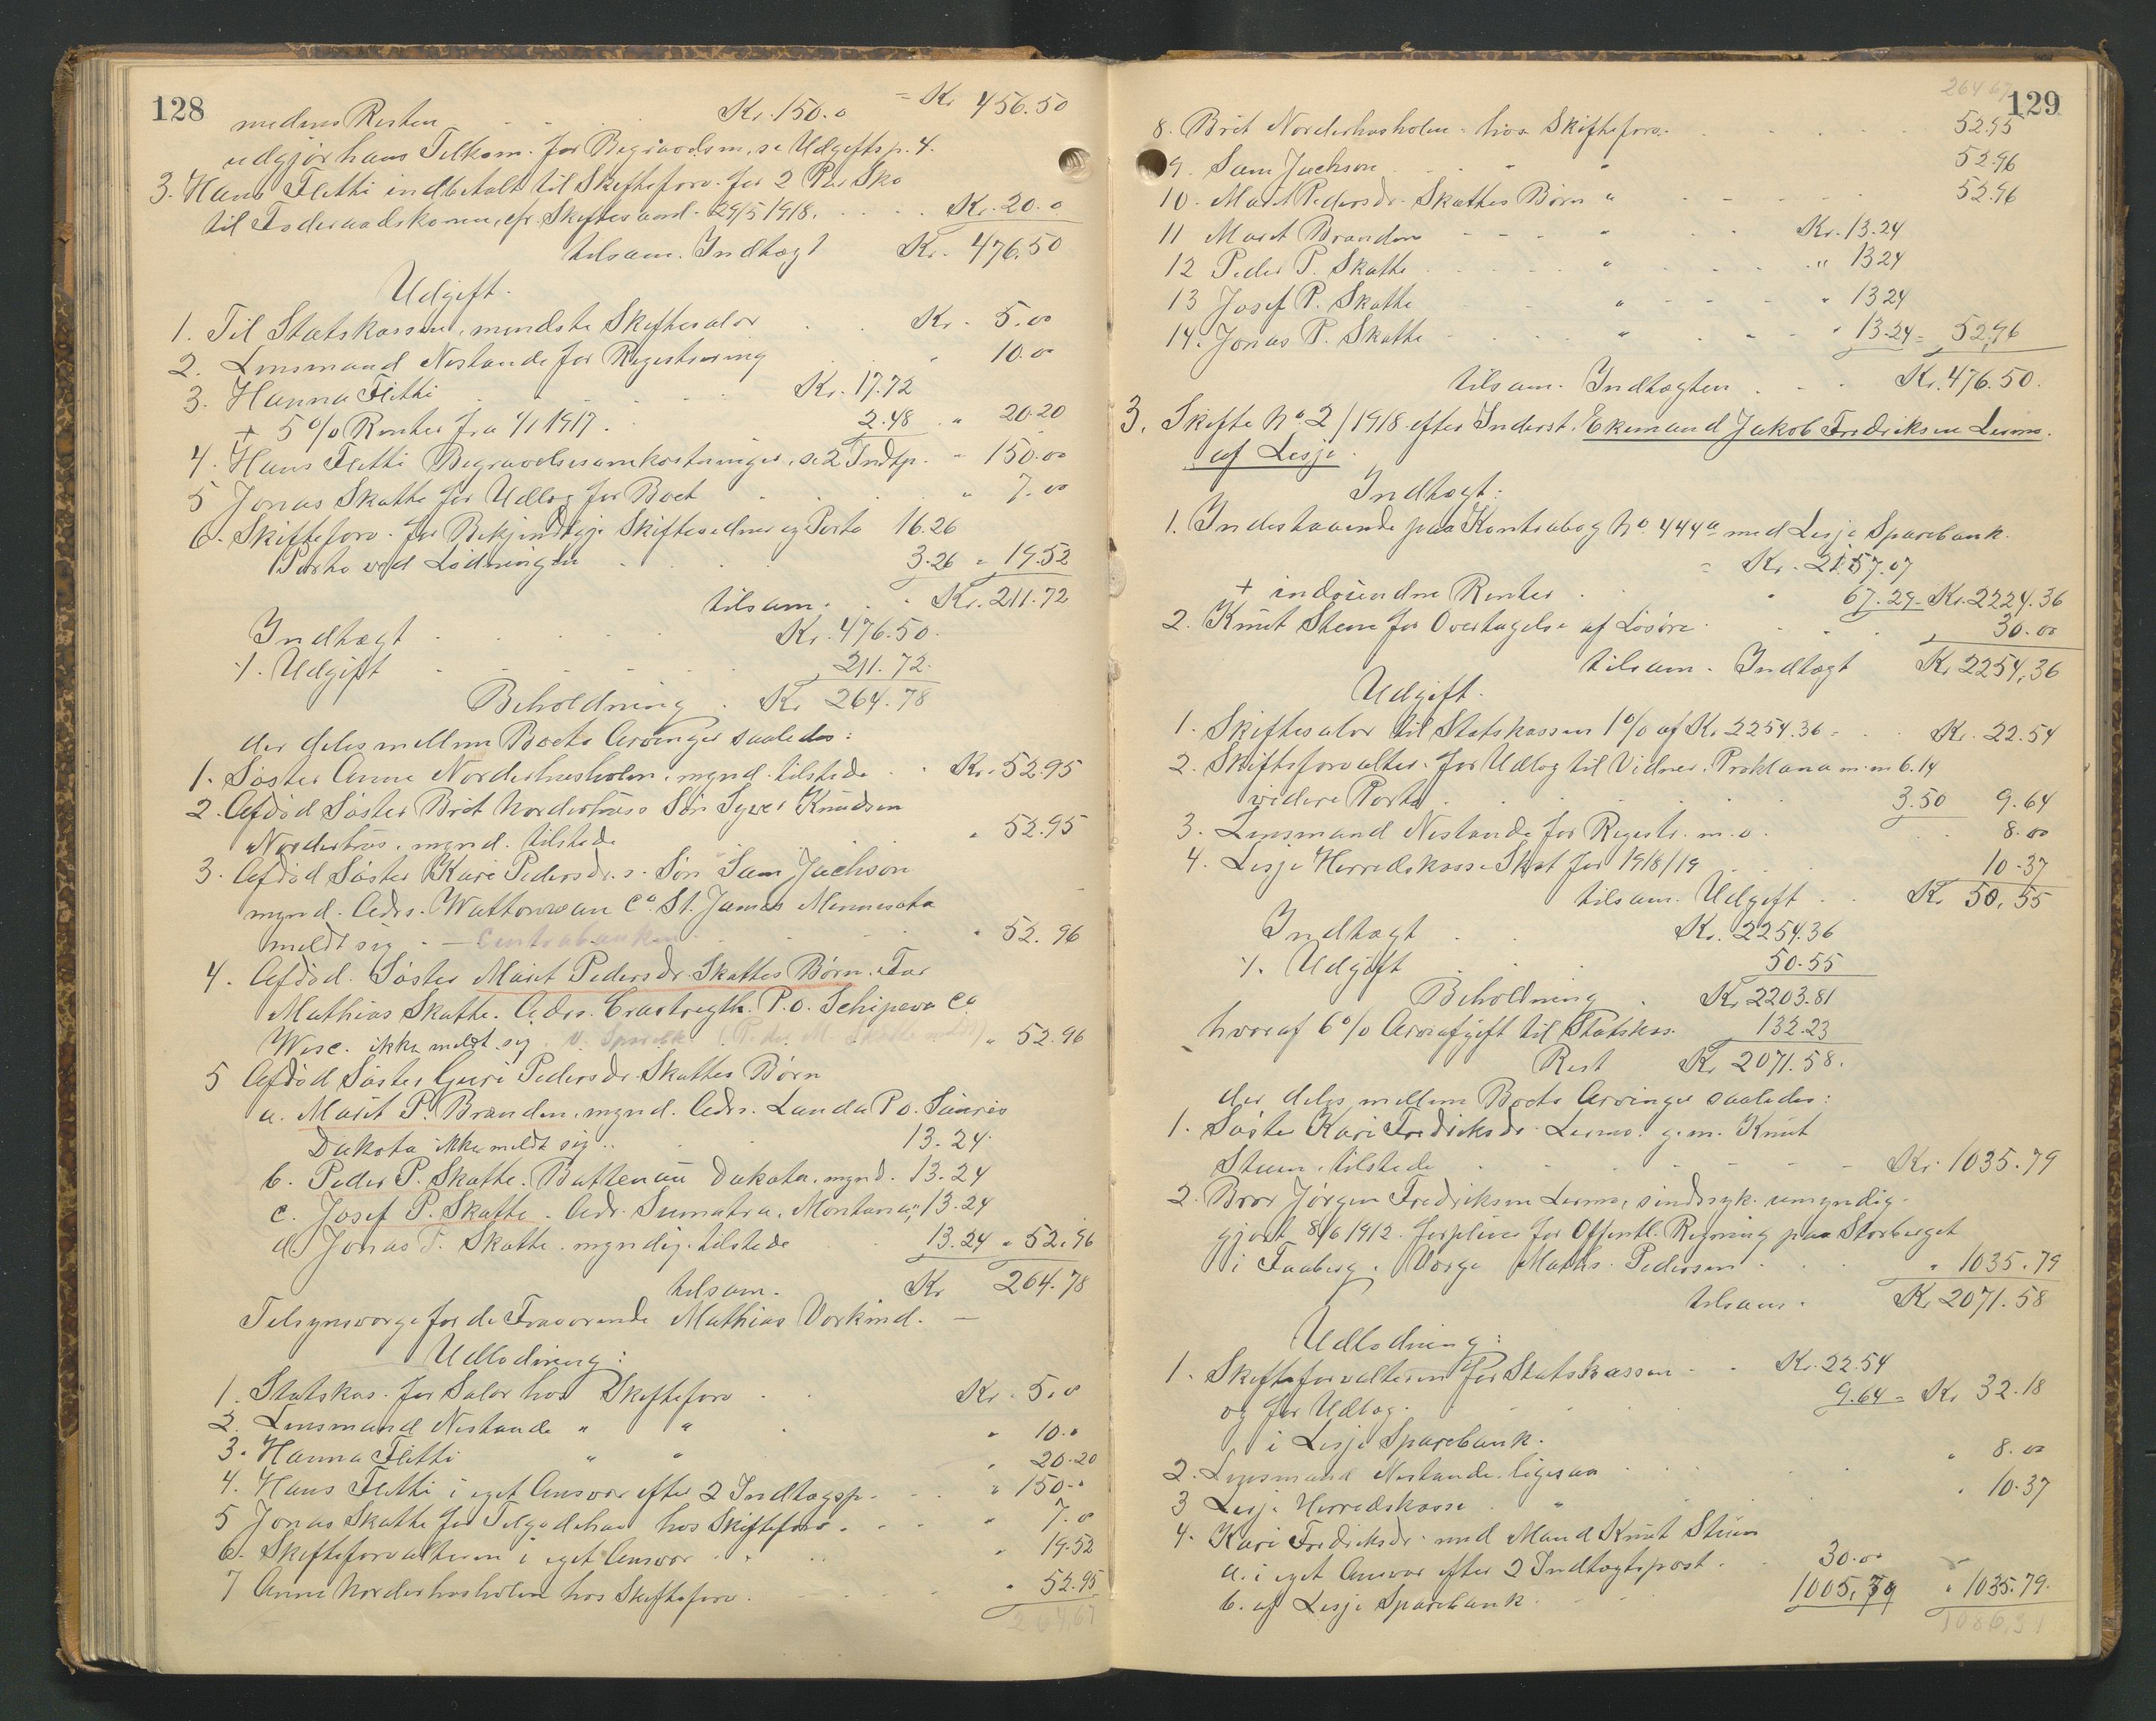 128
medens Resten . . . Kr. 150.0 = Kr 456.50
udgjör hans Tilkom. for Begravelsm, se Udgiftsp. 4.
3. Hans Flitti indbetalt til Skifteforv. for 2 Par Sko
til Foderaadskonen, cfr. Skiftesaml. 29/5 1918. . . . . Kr. 20.0
tilsam. Indtægt Kr. 476.50
Udgift.
1. Til Statskassen, mindste Skiftesalær . . Kr. 5.00
2. Lensmand Nestande for Registrering . . . " 10.00
3. Hanna Flitti . . . . . Kr. 17.72
+ 5 % Renter fra 1/1 1917 . 2.48 . " 20.20
4. Hans Flitti Begravelsesomkostninger, se 2 Indtp. " 150.00
5 Jonas Skotte for Udlæg for Boet . . . " 7.00
6. Skifteforv. for Bekjendtgj. Skiftevidner og Porto 16.26
Porto ved Lodningen . . . . 3.26 = 19.52
tilsam. . . Kr. 211.72
Indtægt . . . . . Kr. 476.50.
./. Udgift . . . . . 211.72.
Beholdning . Kr 264.78
der deles mellem Boets Arvinger saaledes:
1. Söster Anne Norderhusholen, mynd. tilstede . . Kr. 52.95
2. Afdöd Söster Brit Norderhuss Sön Syver Knudsen
Norderhus, mynd. tilstede " 52.95
3. Afdöd Söster Kari Pedersdr.s. Sön Sam Jackson
mynd. Adrs. Wattonwan Co. St. James Minnesota
meldt sig . — Centrabanken . . . " 52.96
4. Afdöd. Söster Marit Pedersdr. Skottes Börn. Far
Mathias Skotte. Adrs. P.O. Co.
Wisc. ikke meldt sig. " 52.96
5 Afdöd Söster Guri Pedersdr. Skottes Börn
a. Marit P. Branden, mynd. Adrs. Landa Po. Souris
Dakota ikke meldt sig . . . . 13.24.
b. Peder P. Skotte. Dakota, mynd. 13.24
c. Josef P. Skotte. Adr. Sumatra, Montana " 13.24
d. Jonas P. Skotte. myndig. tilstede . . 13.24 " 52.96
tilsam. Kr 264.78
Tilsynsværge for de Fraværende Mathias Vorkind. —
Udlodning:
1. Statskas. for Salær hos Skifteforv . . Kr. 5.0
2. Lensmand Nestande " " . " 10.0
3. Hanna Flitti " " " 20.20
4. Hans Flitti i eget Ansvar efter 2 Indtægsp. . . " 150.0
5 Jonas Skotte for Tilgodehav hos Skifteforv. . . . " 7.0
6. Skifteforvalteren i eget Ansvar . . . . " 19.52
7 Anne Norderhusholen hos Skifteforv. . . . . " 52.95
264.67
264 67
129
8. Brit Norderhusholen hos Skifteforv. . . . . . 52.95
9. Sam Jackson . . " " 52.96
10. Marit Pedersdr. Skottes Börn " . . . 52.96
11 Marit Branden . . . " . . Kr. 13.24
12 Peder P. Skotte . . . . " . . . " 13 24
13 Josef P. Skotte " . . . " 13 24
14. Jonas P. Skotte . . . . " . . . " 13.24 = 52.96
tilsam. Indtægten . . . Kr. 476.50.
3. Skifte No 2/1918 efter Inderst. Ekemand Jakob Fredriksen
af Lesje.
Indtægt:
1. Indestaaende paa Kontrabog No. 444a med Lesje Sparebank.
= Kr. 2157.07
+ indvundne Renter . . " 67.29 = Kr. 2224.36
2. Knut Steen for Overtagelse af Lösöre . . . . " 30.00
tilsam. Indtægt Kr 2254.36
Udgift.
1. Skiftesalær til Statskassen 1% af Kr. 2254.36 = . . Kr. 22.54
2. Skifteforvalter. for Udlæg til Vidner, Proklama m.m 6.14
videre Porto . . . . . 3.50 9.64
3. Lensmand Nestande for Registr. m.v. . . 8.00
4. Lesje Herredskasse Skat for 1918/19 . . . 10.37
tilsam. Udgift . . Kr 50.55
Indtægt . . Kr. 2254.36
./. Udgift . . . 50.55
Beholdning . Kr 2203.81
hvoraf 6% Arveafgift til Statskas. 132.23
Rest Kr 2071.58.
der deles mellem Boets Arvinger saaledes:
1. Söster Kari Fredriksdr. g.m. Knut
Steen, tilstede . . . . . . . Kr. 1035.79
2. Bror Jörgen Fredriksen sindssyk. umyndig-
gjort 8/6 1912. forpleies for Offentl. Regning paa Storberget
i Faaberg. Værge Mathis Pedersen . . . . " 1035.79
tilsam. Kr 2071.58
Udlodning:
1. Skifteforvalteren for Statskassen . . Kr. 22.54
og for Udlæg. . . . . . 9.64 = Kr 32.18
i Lesje Sparebank.
2. Lensmand Nestande, ligesaa . . . . " 8.00
3 Lesje Herredskasse . " . . . " 10.37
4. Kari Fredriksdr. med Mand Knut Steen
a. i eget Ansvar efter 2 Indtægtspost . . 30.00
b. af Lesje Sparebank . . . 1005.79 " 1035.79.
1086,34